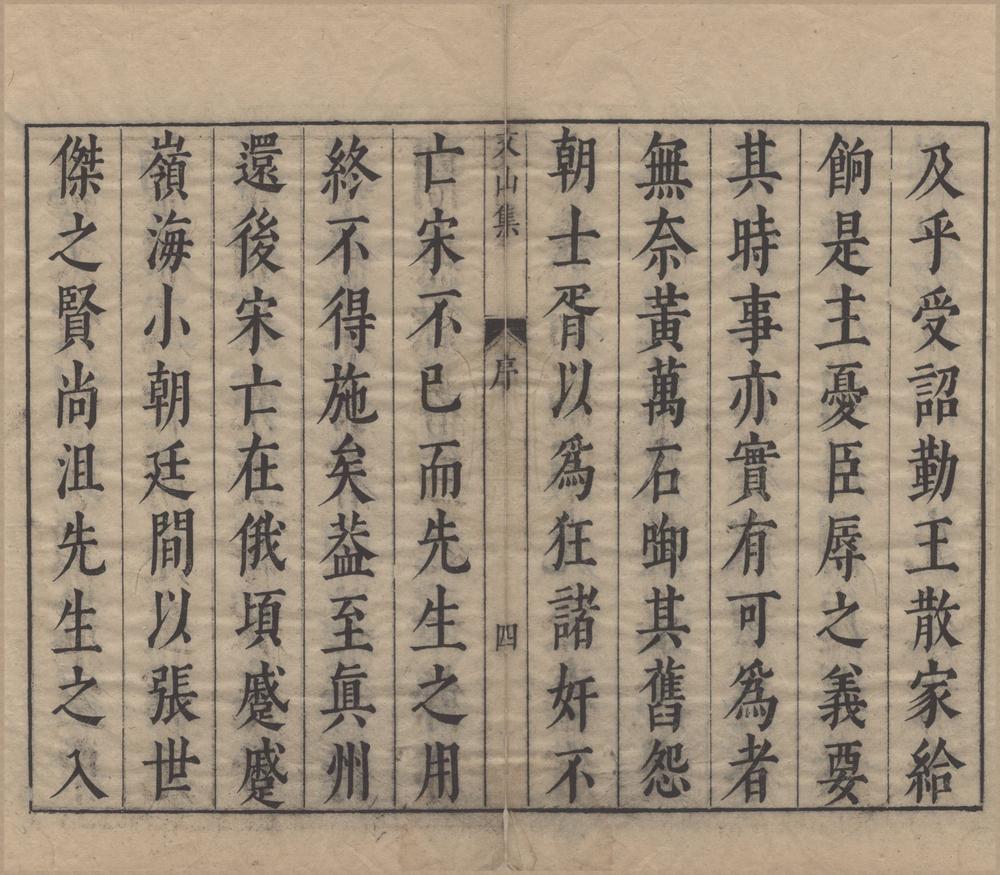 及乎受詔勤王散家給
餉是主憂臣辱之義要
其時事亦實有可爲者
無奈黃萬石啣其舊怨
朝士胥以爲狂諸奸不
文山集 序 四
亡宋不已而先生之用
終不得施矣葢至眞州
還後宋亡在俄頃蹙蹙
嶺海小朝廷間以張世
傑之賢尚沮先生之入